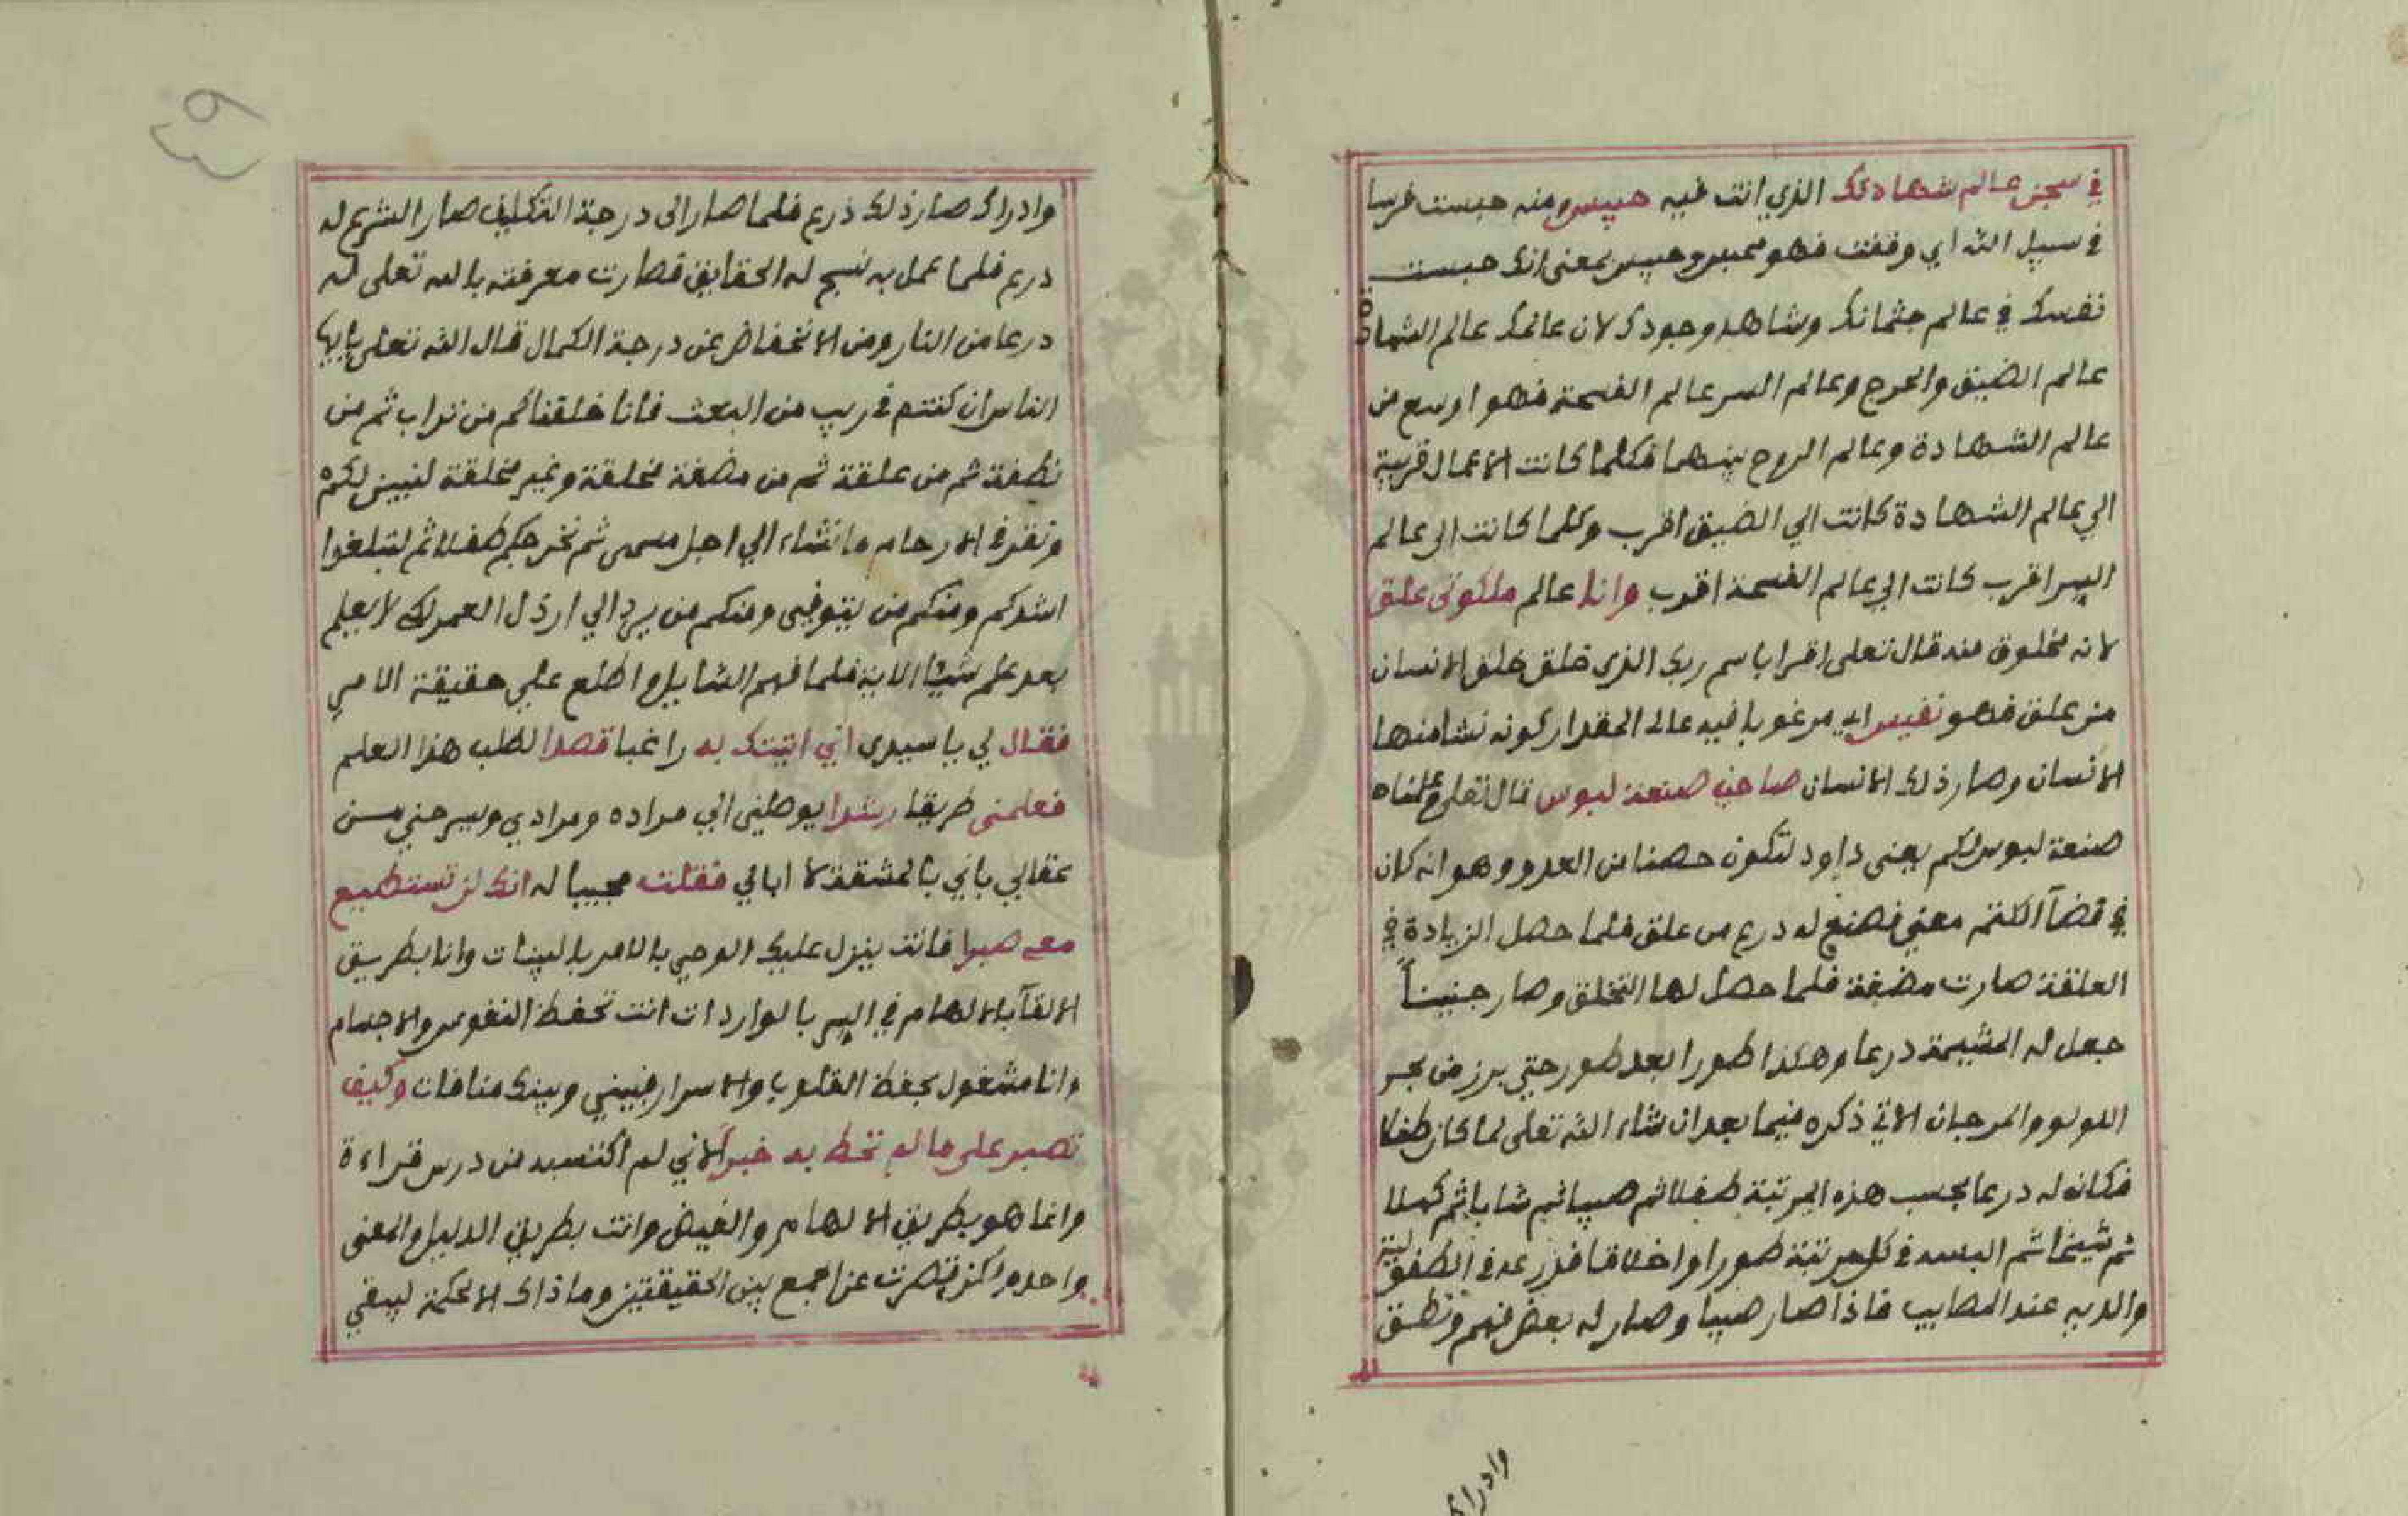 في سجن عالم شهادتك الذي انت فيه حبيس ومنه حبست فرسا
في سبيل الله اي وقفت فهو محبوس وحبيس بمعنى انك حبست
نفسك في عالم جثمانك وشاهد وجودك لان عالمك عالم الشهادة
عالم الضيق والحرج وعالم السر عالم الفسحة فهو اوسع من
عالم الشهادة وعالم الروح بينهما فكلما كانت الاعمال قريبة
الي عالم الشهادة كانت الي الضيق اقرب وكلما كانت الى عالم
السر اقرب كانت الي عالم الفسحة اقرب وانا عالم ملكوتى علق
لانه مخلوق منه قال تعلى اقرا باسم ربك الذي خلق خلق الانسان
من علق فهو نفيس اي مرغوبا فيه عالى المقدار كونه نشا منها
الانسان وصار ذلك الانسان صاحب صنعة لبوس قال تعلى وعلمناه
صنعة لبوس لكم يعني داود لتكون حصنا من العدو وهو انه كان
في قضآ الكتم معني فصنع له درع من علق فلما حصل الزيادة في
العلقة صارت مضغة فلما حصل لها التخلق وصار جنيناً
جعل له المشيمة درعا وهكذا طورا بعد طور حتي برز من بحر
اللولو والمرجان الاتي ذكره فيما بعد ان شاء الله تعلى لما كان طفلا
فكانه له درعا بحسب هذه المرتبة طفلا ثم صبيا ثم شابا ثم كهلا
ثم شيخا ثم البسه في كل مرتبة طورا واخلاقا فدرعه في الطفولية
والديه عند المصايب فاذا صار صبيا وصار له بعض فهم ونطق
وادراك
وادراك صار ذلك درع فلما صار الى درجة التكليف صار الشرع له
درع فلما عمل به نسج له الحقايق فصارت معرفته بالله تعلى له
درعا من النار ومن الانخفاض عن درجة الكمال قال الله تعلى يا ايها
الناس ان كنتم في ريب من البعث فانا خلقناكم من تراب ثم من
نطفة ثم من علقة ثم من مضغة مخلقة وغير مخلقة لنبين لكم
ونقر في الارحام ما نشاء الي اجل مسمى ثم نخرجكم طفلا ثم لتبلغوا
اشدكم ومنكم من يتوفى ومنكم من يرد الي ارذل العمر لك لا يعلم
بعد علم شيئا الاية فلما فهم السايل واطلع علي حقيقة الامر
فقال لي يا سيدى اني اتيتك به راغبا قصدا لطلب هذا العلم
فعلمني طريقا رشدا يوصلني الي مراده ومرادي ويسرحني من
عقالي باني بالمشقة لا ابالي فقلت مجيبا له انك لن تستطيع
معى صبرا فانت ينزل عليك الوحي بالامر بالبينات وانا بطريق
الالقآ بالالهام في السر بالواردات انت تحفظ النفوس والاجسام
وانا مشغول بحفظ القلوب والاسرار فبيني وبينك منافات وكيف
تصبر على ما لم تحط به خبرا لاني لم اكتسبه من درس قراءة
وانما هو بطريق الالهام والفيض وانت بطريق الدليل والمعنى
واحد ولكن قصرت عن الجمع بين الحقيقتين وما ذاك الا لحكمة ليبقي